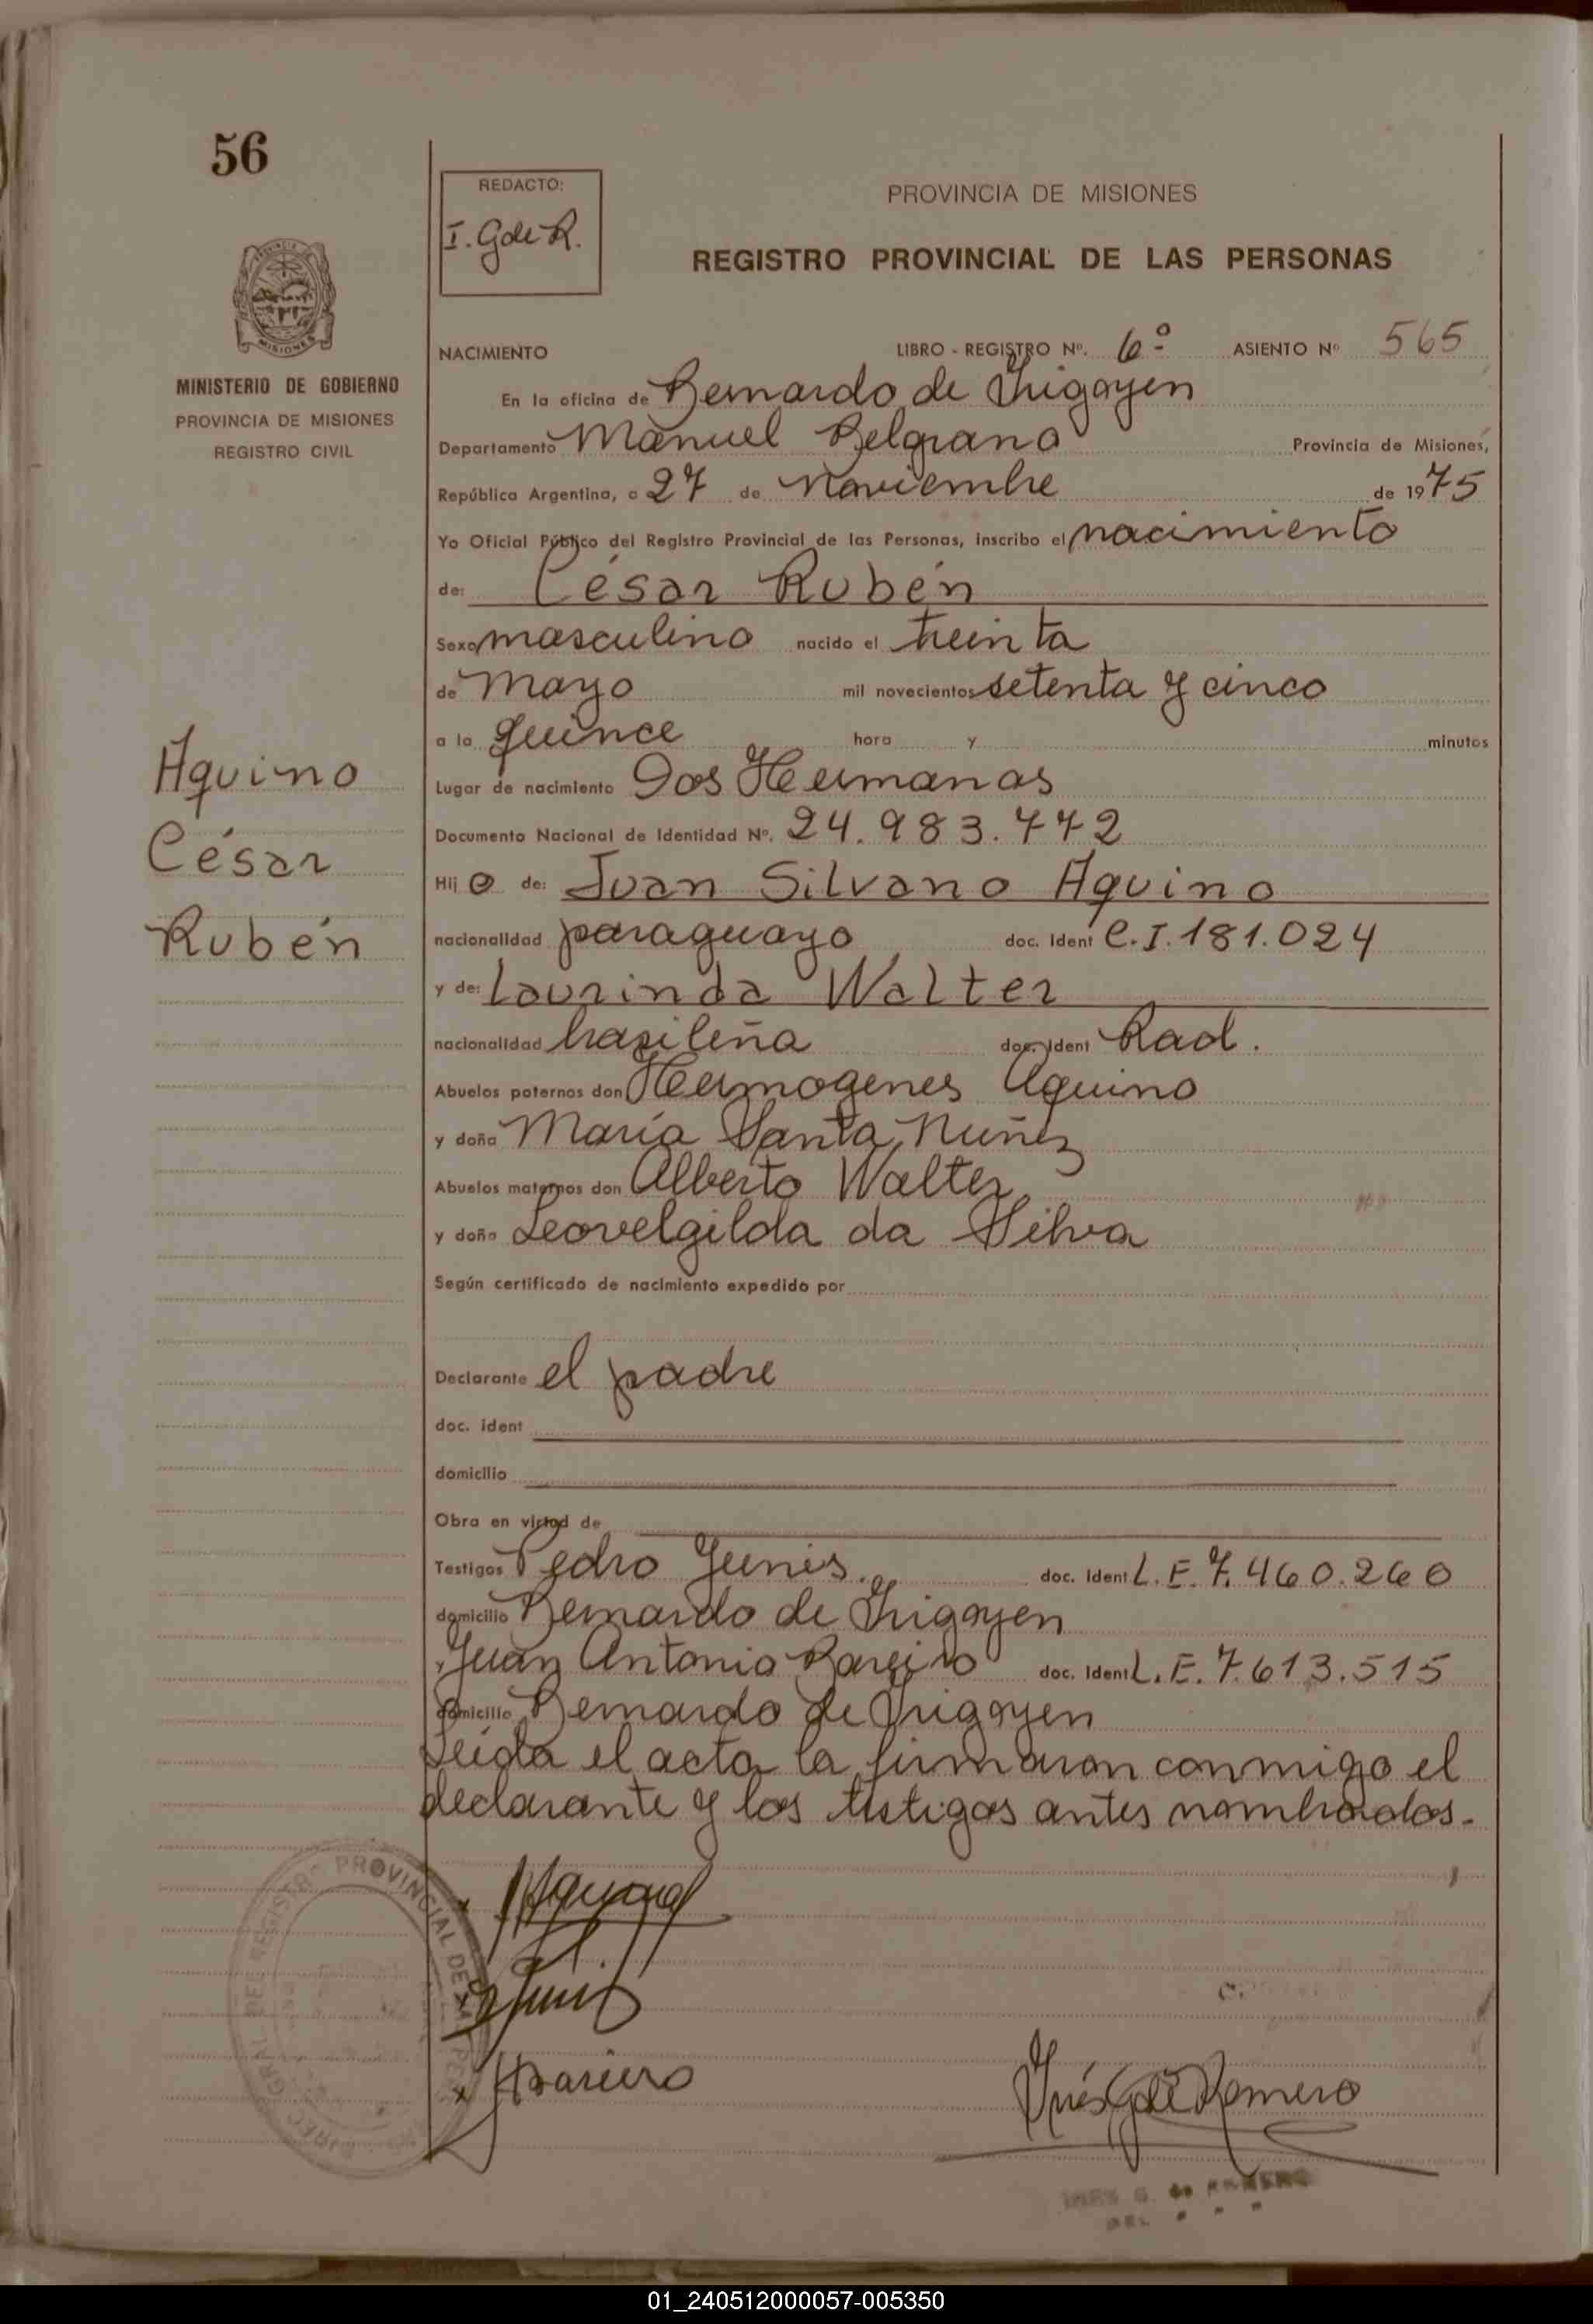 56
REDACTO:
I. G de R.
PROVINCIA DE MISIONES
REGISTRO PROVINCIAL DE LAS PERSONAS
MISIONES
MINISTERIO DE GOBIERNO
PROVINCIA DE MISIONES
REGISTRO CIVIL
NACIMIENTO LIBRO - REGISTRO Nº. 6º ASIENTO Nº 565
En la oficina de Bernardo de Irigoyen
Departamento Manuel Belgrano Provincia de Misiones,
República Argentina, a 27 de Noviembre de 1975
Yo Oficial Público del Registro Provincial de las Personas, inscribo el nacimiento
de: César Rubén
Sexo masculino nacido el treinta
de Mayo mil novecientos setenta y cinco
a la quince hora y minutos
Lugar de nacimiento Dos Hermanas
Documento Nacional de Identidad Nº. 24.983.772
Hij o de: Juan Silvano Aquino
nacionalidad paraguayo doc. Ident C.I. 181.024
y de: Laurinda Walter
nacionalidad brasileña doc. Ident Rad.
Abuelos paternos don Hermogenes Aquino
y doña María Santa Nuñez
Abuelos maternos don Alberto Walter
y doña Leovelgilda da Silva
Según certificado de nacimiento expedido por
Declarante el padre
doc. ident
domicilio
Obra en virtud de
Testigos Pedro Yunis. doc. Ident L.E. 7.460.260
domicilio Bernardo de Irigoyen
Juan Antonio Bareiro doc. Ident L.E. 7.613.515
domicilio Bernardo de Irigoyen
Leída el acta la firmaron conmigo el
declarante y los testigos antes nombrados.
Aquino
César
Rubén
PROVINCIAL DE
Inés G de Romero
INES G. de ROMERO
01_240512000057-005350